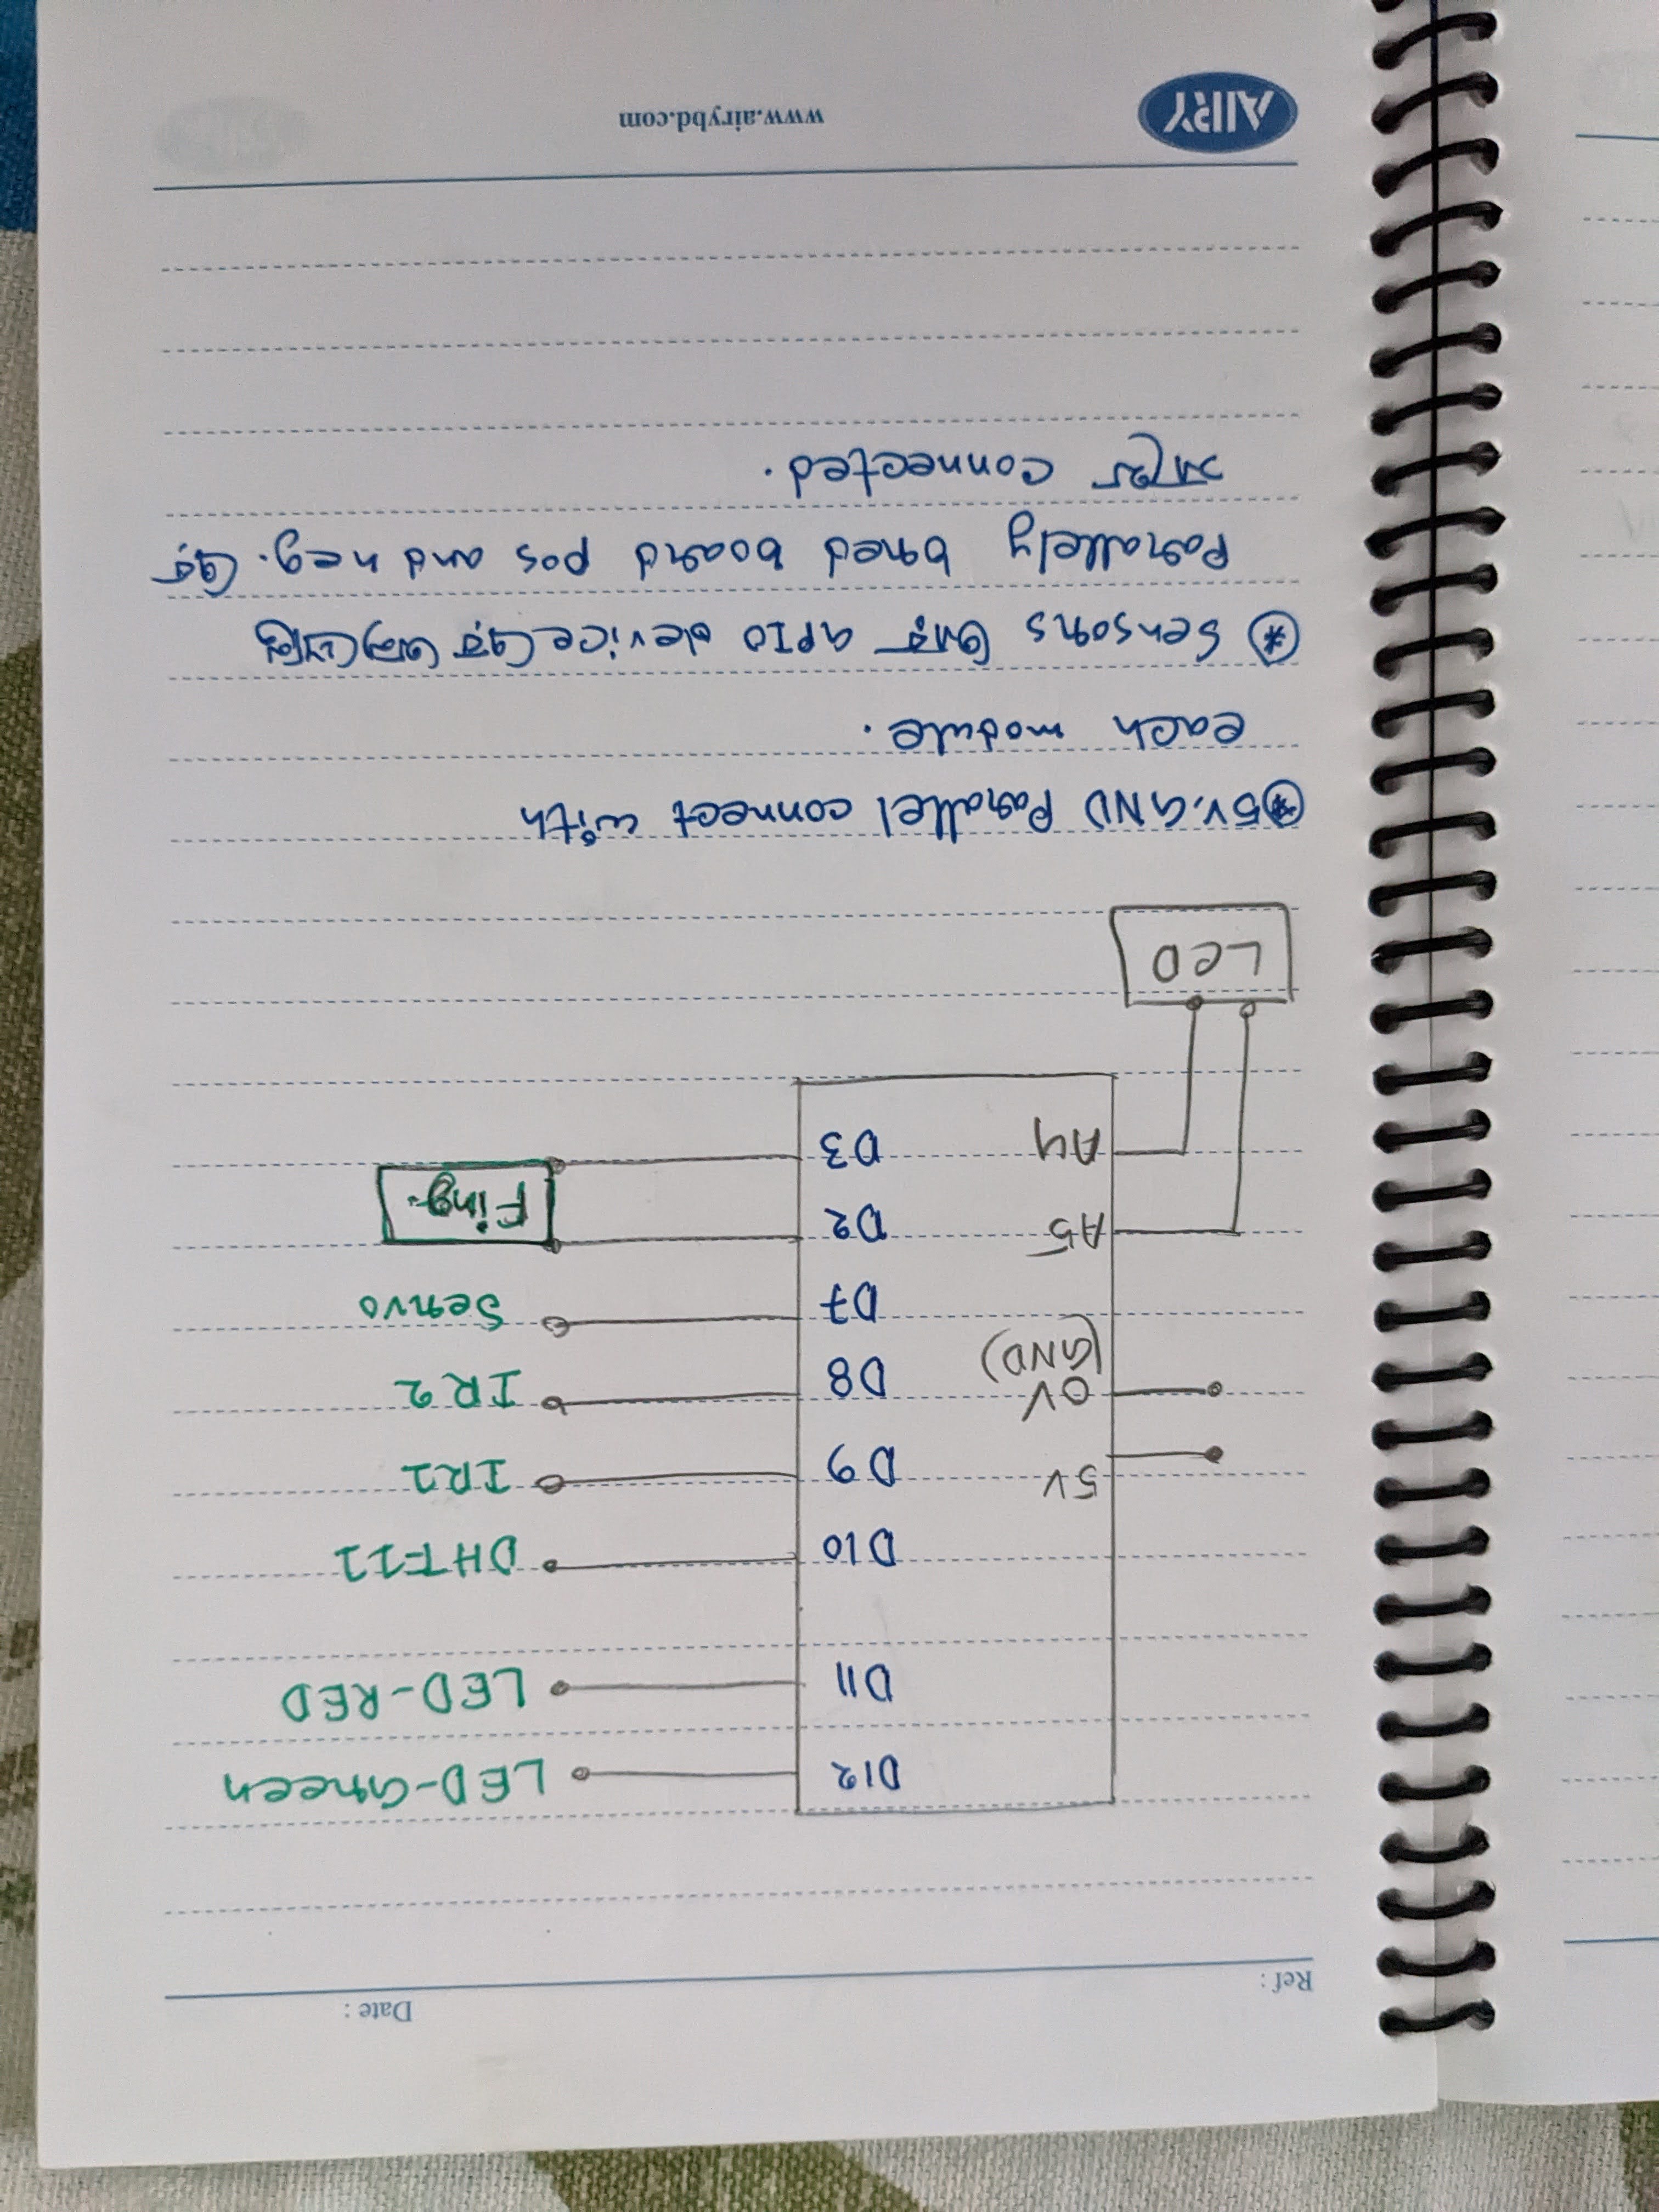 Ref :
Date :
D12
LED-Green
D11
LED-RED
D10
DHT-11
5V
D9
IR1
0V
(GND)
D8
IR2
D7
Servo
A5
D2
Fing.
A4
D3
LCD
* 5V, GND Parallel connect with
each module.
* Sensors আর GPIO device এর অন্য প্রান্ত
Parallely bred board pos and neg. এর
সাথে connected.
AIRY
www.airybd.com